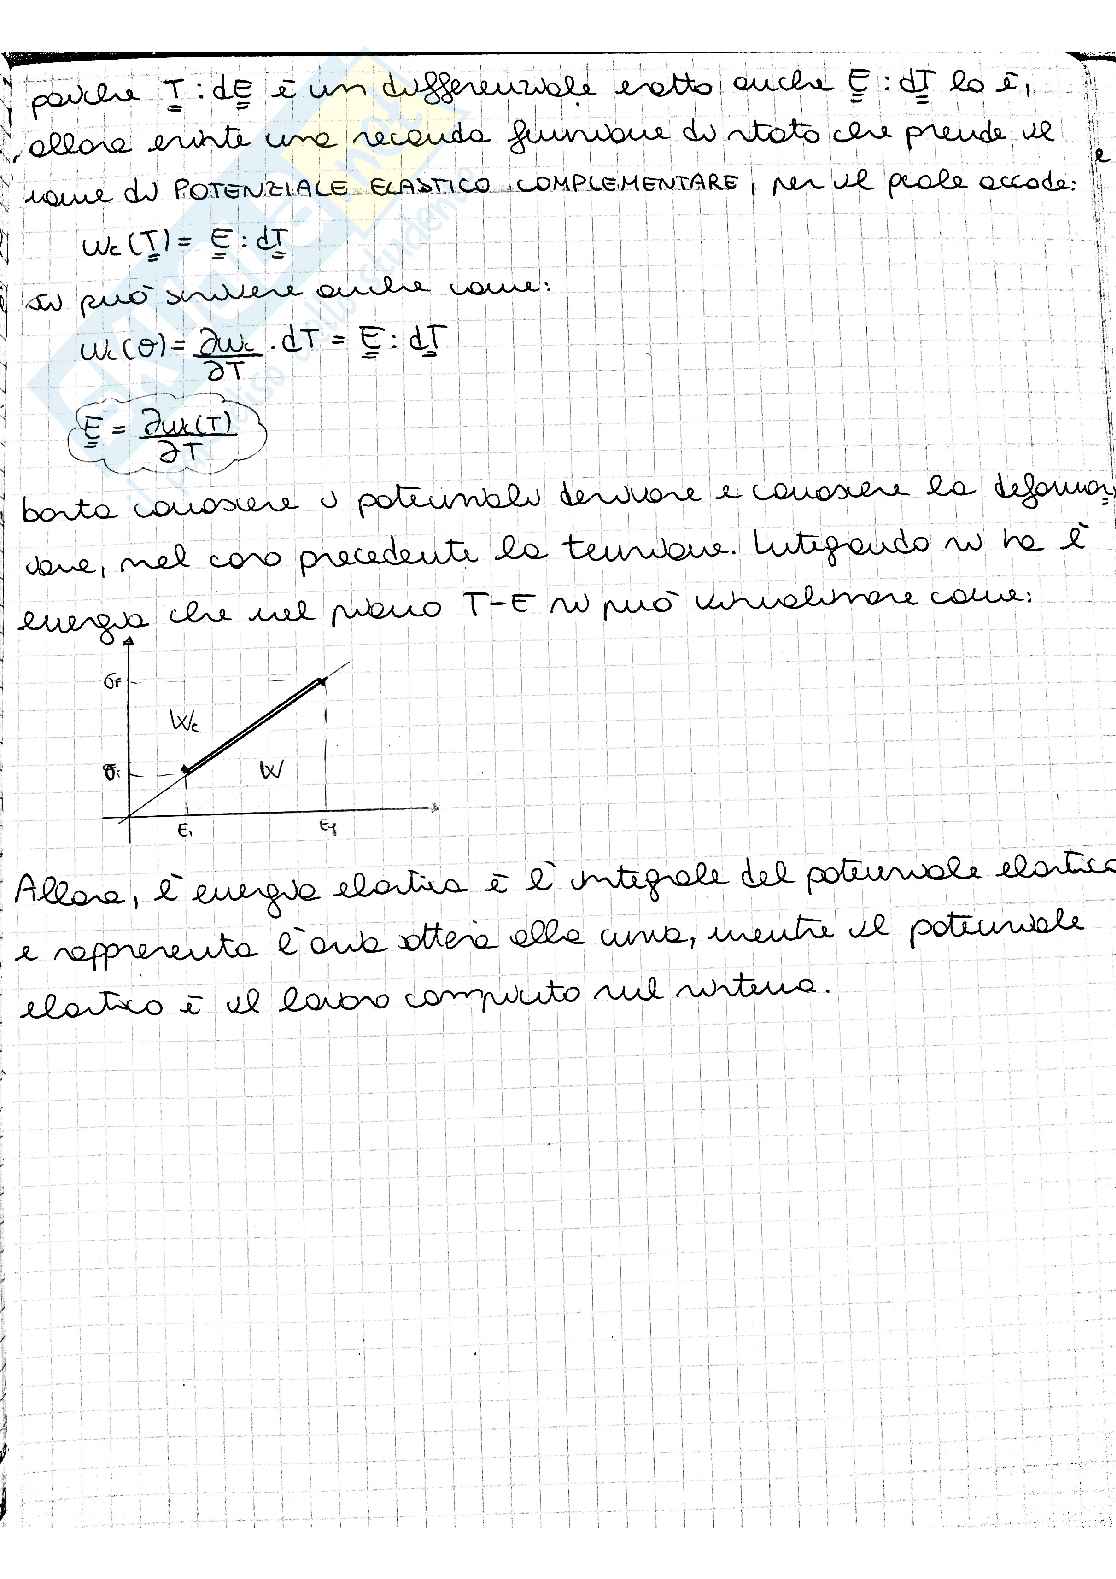 poiché T : dE è un differenziale esatto anche E : dT lo è,
allora esiste una seconda funzione di stato che prende il
nome di POTENZIALE ELASTICO COMPLEMENTARE, per il quale accade:
Wc(T) = E : dT
si può scrivere anche come:
Wc(σ) = ∂Wc/∂T · dT = E : dT
E = ∂Wc(T)/∂T
basta conoscere i potenziali derivare e conoscere la deformaz
ione, nel caso precedente la tensione. Integrando si ha l'
energia che nel piano T-E si può visualizzare come:
σf
Wc
σi
W
Ei
Ef
Allora, l'energia elastica è l'integrale del potenziale elastico
e rappresenta l'area sottesa alla curva, mentre il potenziale
elastico è il lavoro compiuto sul sistema.